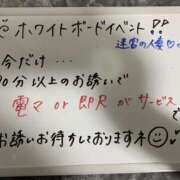 ホワイトボードイベント!!
迷宮の人妻
今だけ…
90分以上のお誘いで
電マ or 即尺 がサービス
で
お誘いお待かしておりますネ